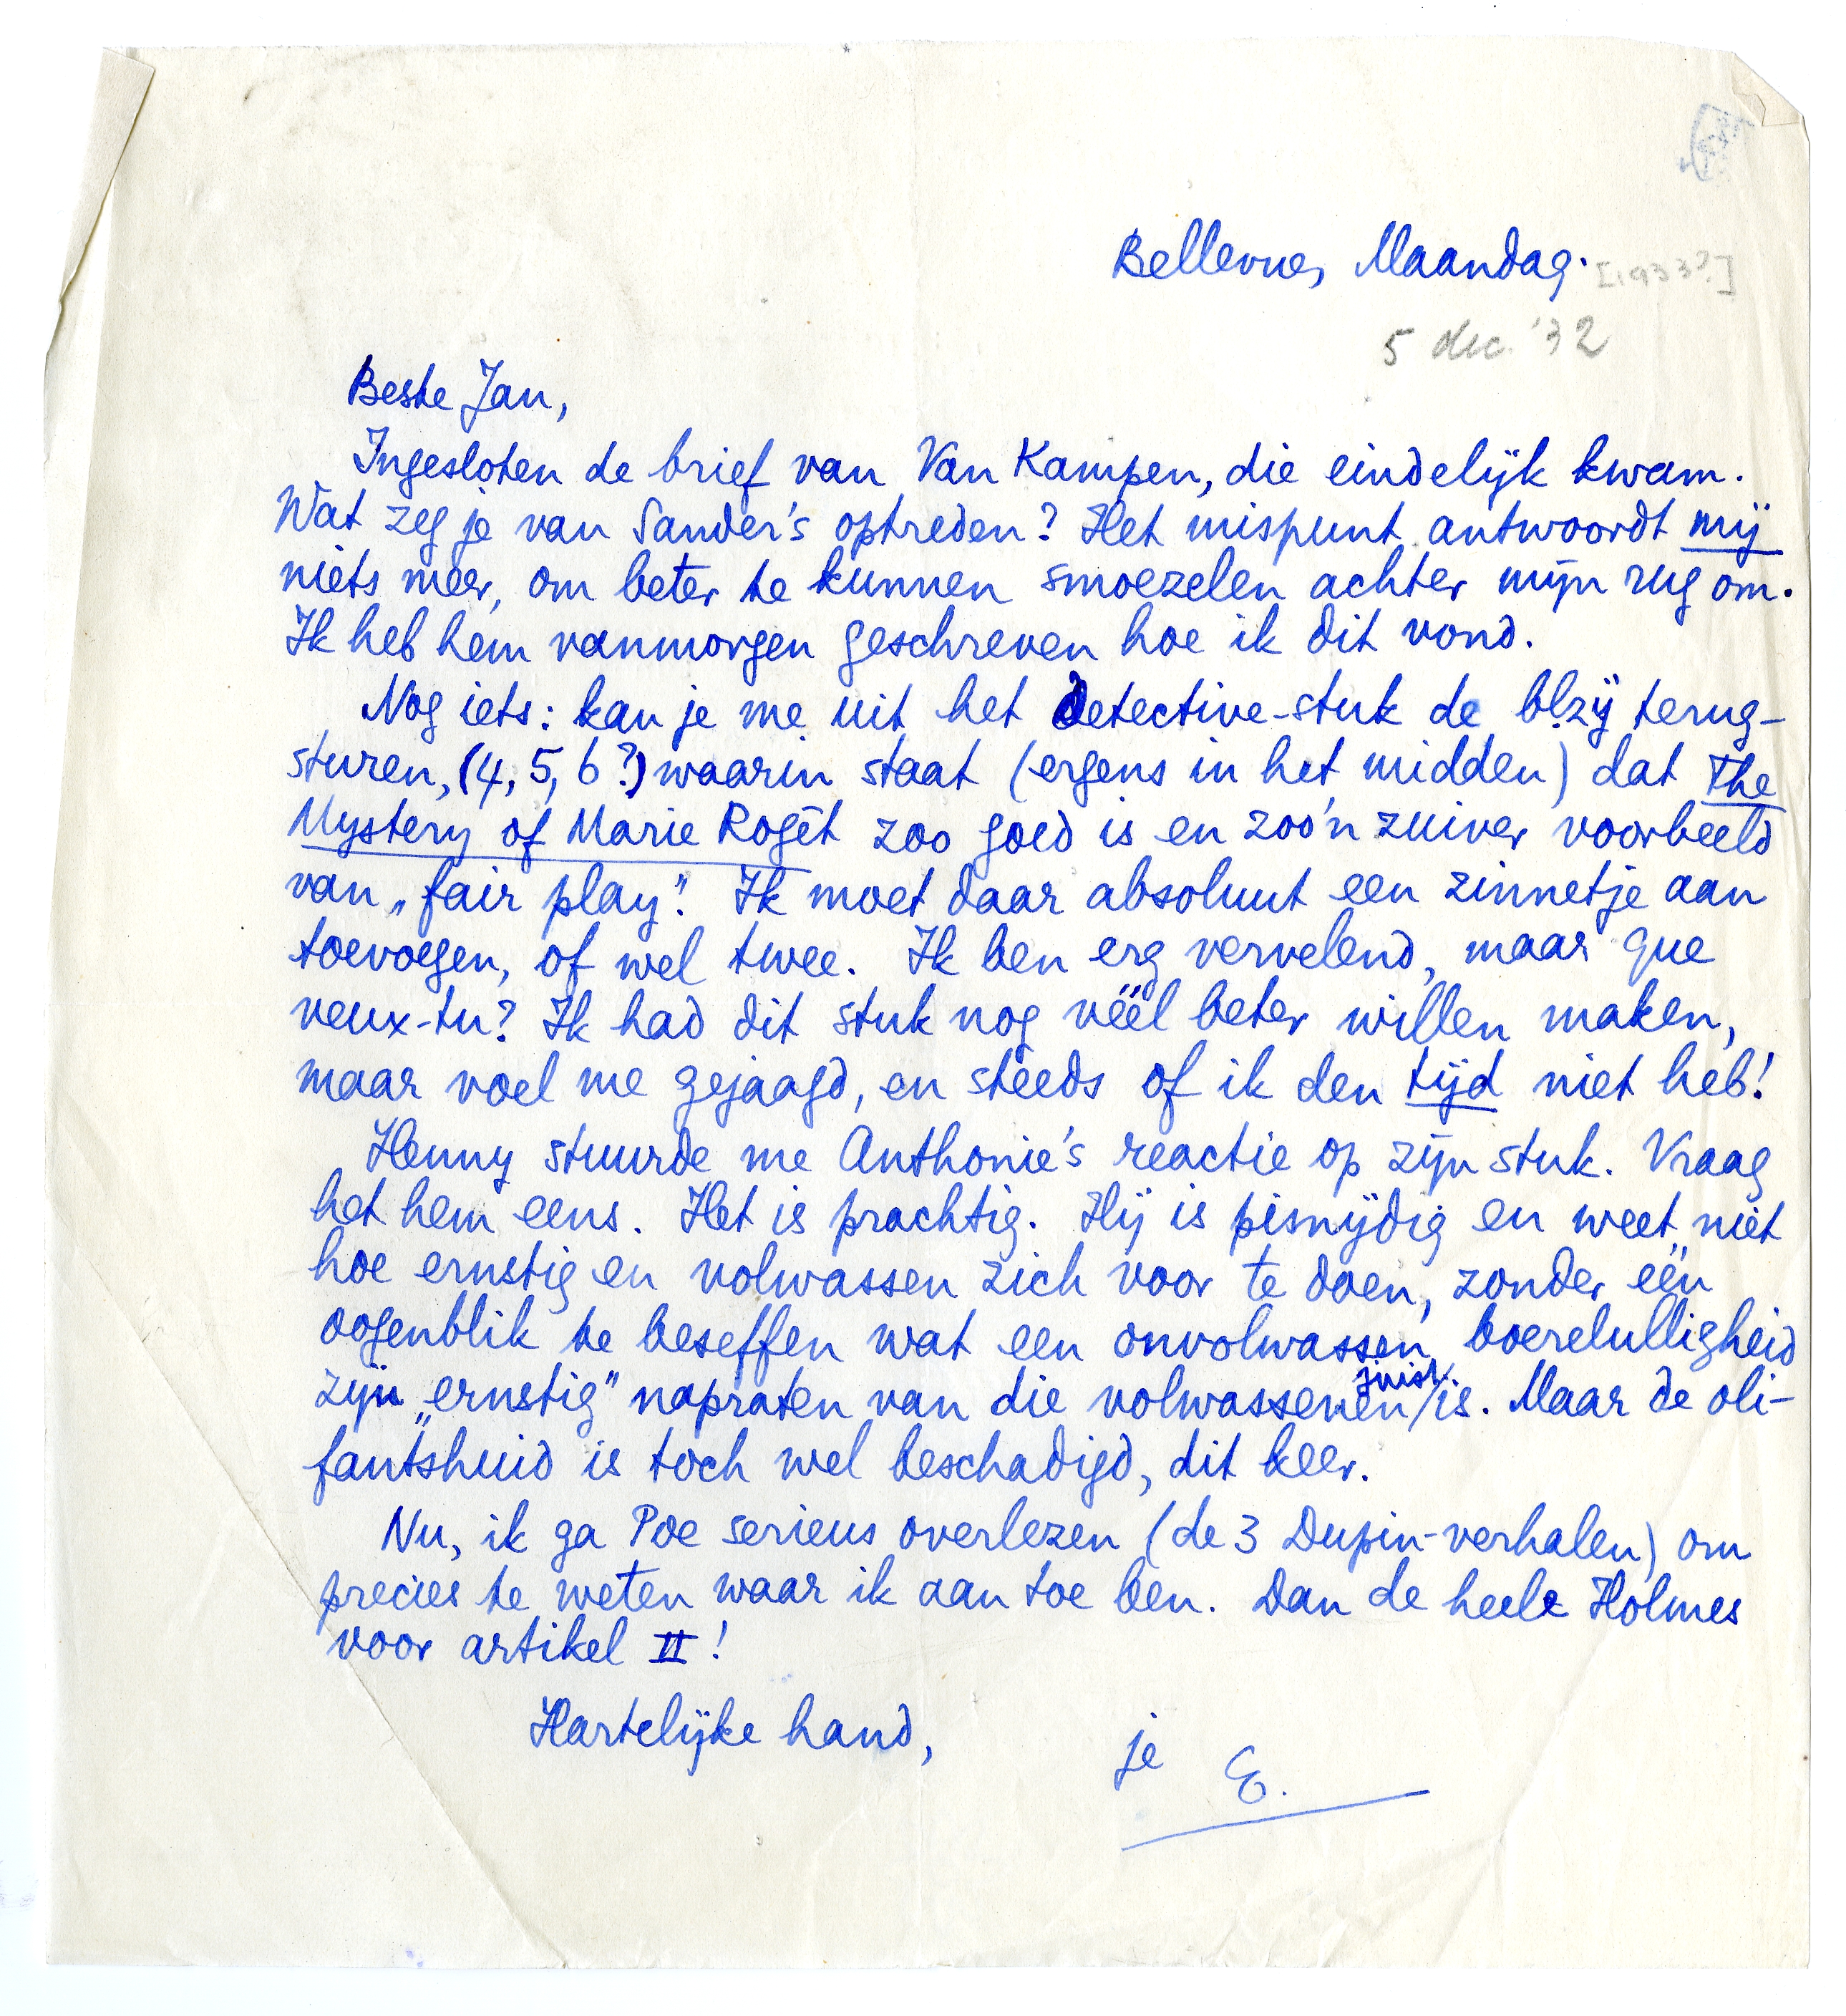 Bellevue, Maandag. [1933?]
5 dec. '32
Beste Jan,
Ingesloten de brief van Van Kampen, die eindelijk kwam.
Wat zeg je van Sander's optreden? Het mispunt antwoordt mij
niets meer, om beter te kunnen smoezelen achter mijn rug om.
Ik heb hem vanmorgen geschreven hoe ik dit vond.
Nog iets: kan je me uit het detective-stuk de blzij terug-
sturen, (4, 5, 6?) waarin staat (ergens in het midden) dat The
Mystery of Marie Rogêt zoo goed is en zoo'n zuiver voorbeeld
van „fair play". Ik moet daar absoluut een zinnetje aan
toevoegen, of wel twee. Ik ben erg vervelend, maar que
veux-tu? Ik had dit stuk nog véél beter willen maken,
maar voel me gejaagd, en steeds of ik den tijd niet heb!
Henny stuurde me Anthonie's reactie op zijn stuk. Vraag
het hem eens. Het is prachtig. Hij is pisnijdig en weet niet
hoe ernstig en volwassen zich voor te doen, zonder één
oogenblik te beseffen wat een onvolwassen boerelulligheid
zijn „ernstig" napraten van die volwassenen juist is. Maar de oli-
fantshuid is toch wel beschadigd, dit keer.
Nu, ik ga Poe serieus overlezen (de 3 Dupin-verhalen) om
precies te weten waar ik aan toe ben. Dan de heele Holmes
voor artikel II!
Hartelijke hand, je E.